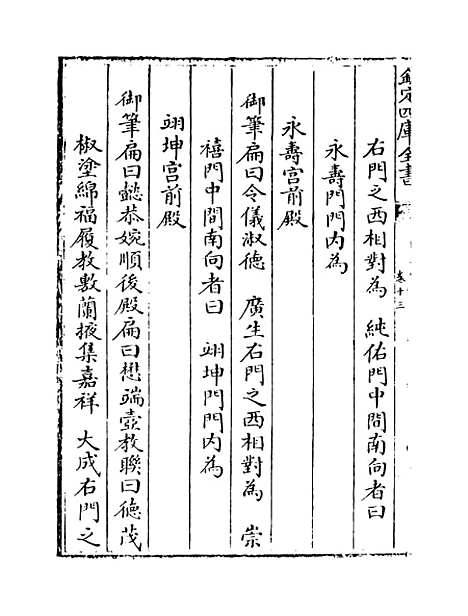 欽定四庫全書
卷十三
右門之西相對為　純佑門中間南向者曰
永壽門門內為
永壽宮前殿
御筆扁曰令儀淑德　廣生右門之西相對為　崇
禧門中間南向者曰　翊坤門門內為
翊坤宮前殿
御筆扁曰懿恭婉順後殿扁曰懋端壼教聯曰德茂
椒塗綿福履教敷蘭掖集嘉祥　大成右門之